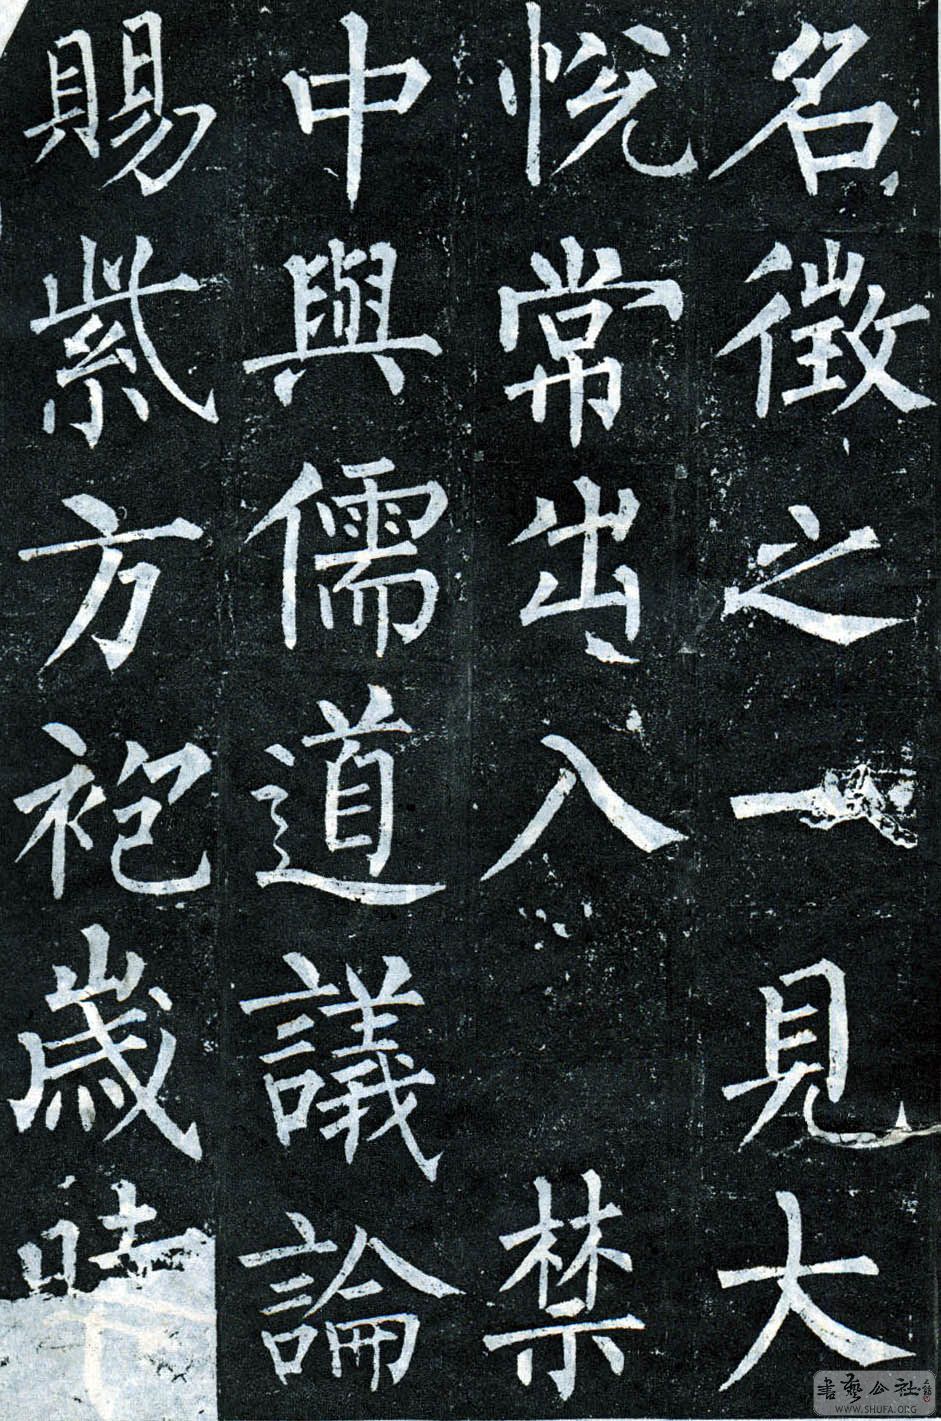 名徵之一見大
悅常出入禁
中與儒道議論
賜紫方袍歲時
書藝公社
WWW.SHUFA.ORG